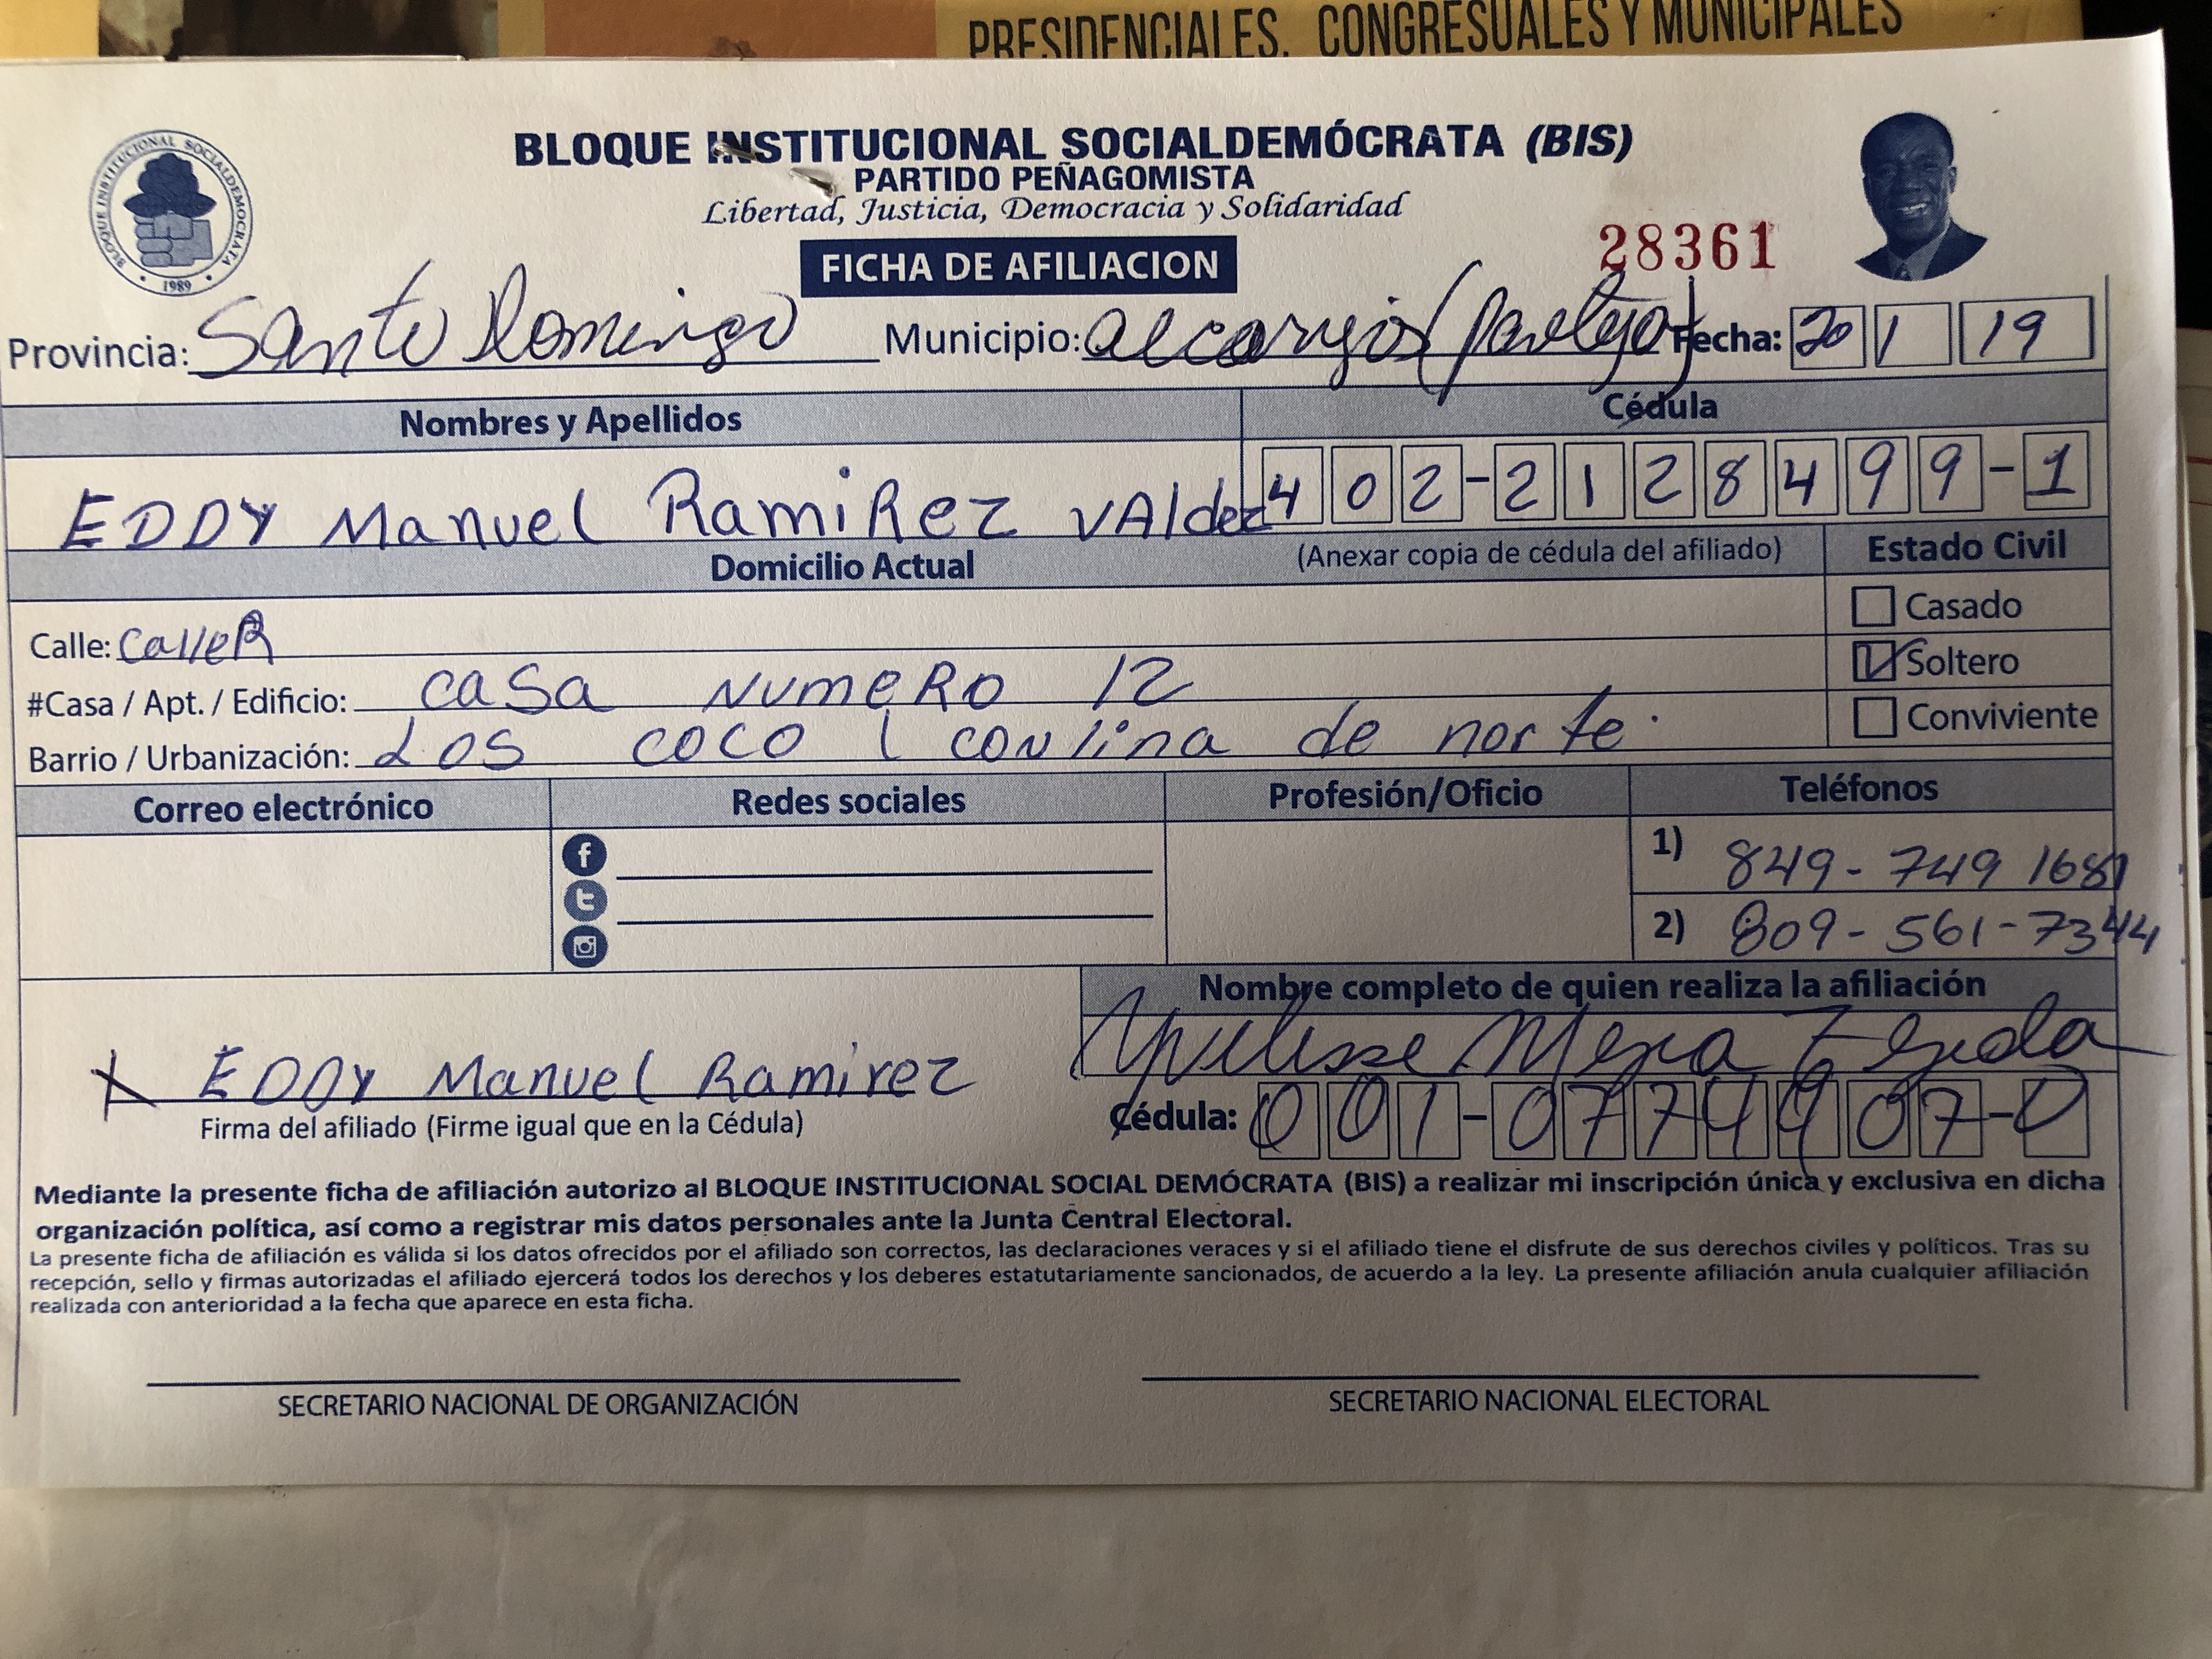 PRESIDENCIALES, CONGRESUALES Y MUNICIPALES
BLOQUE INSTITUCIONAL SOCIALDEMÓCRATA (BIS)
PARTIDO PEÑAGOMISTA
Libertad, Justicia, Democracia y Solidaridad
BLOQUE INSTITUCIONAL SOCIALDEMOCRATA
1989
FICHA DE AFILIACION
28361
Provincia: Santo Domingo Municipio: alcarrizos (pantoja) Fecha: 20 1 19
Nombres y Apellidos Cédula
EDDY Manuel RamiRez VAldez 402-2128499-1
Domicilio Actual (Anexar copia de cédula del afiliado) Estado Civil
Casado
Calle: Calle R
Soltero
#Casa / Apt. / Edificio: casa NumeRO 12
Conviviente
Barrio / Urbanización: Los coco l coulina de norte.
Correo electrónico Redes sociales Profesión/Oficio Teléfonos
1) 849-749 1681
2) 809-561-7344
Nombre completo de quien realiza la afiliación
Yvelisse Mejia Tejeda
X EDDY Manuel Ramirez
Firma del afiliado (Firme igual que en la Cédula)
Cédula: 001-0774907-0
Mediante la presente ficha de afiliación autorizo al BLOQUE INSTITUCIONAL SOCIAL DEMÓCRATA (BIS) a realizar mi inscripción única y exclusiva en dicha
organización política, así como a registrar mis datos personales ante la Junta Central Electoral.
La presente ficha de afiliación es válida si los datos ofrecidos por el afiliado son correctos, las declaraciones veraces y si el afiliado tiene el disfrute de sus derechos civiles y políticos. Tras su
recepción, sello y firmas autorizadas el afiliado ejercerá todos los derechos y los deberes estatutariamente sancionados, de acuerdo a la ley. La presente afiliación anula cualquier afiliación
realizada con anterioridad a la fecha que aparece en esta ficha.
SECRETARIO NACIONAL DE ORGANIZACIÓN SECRETARIO NACIONAL ELECTORAL